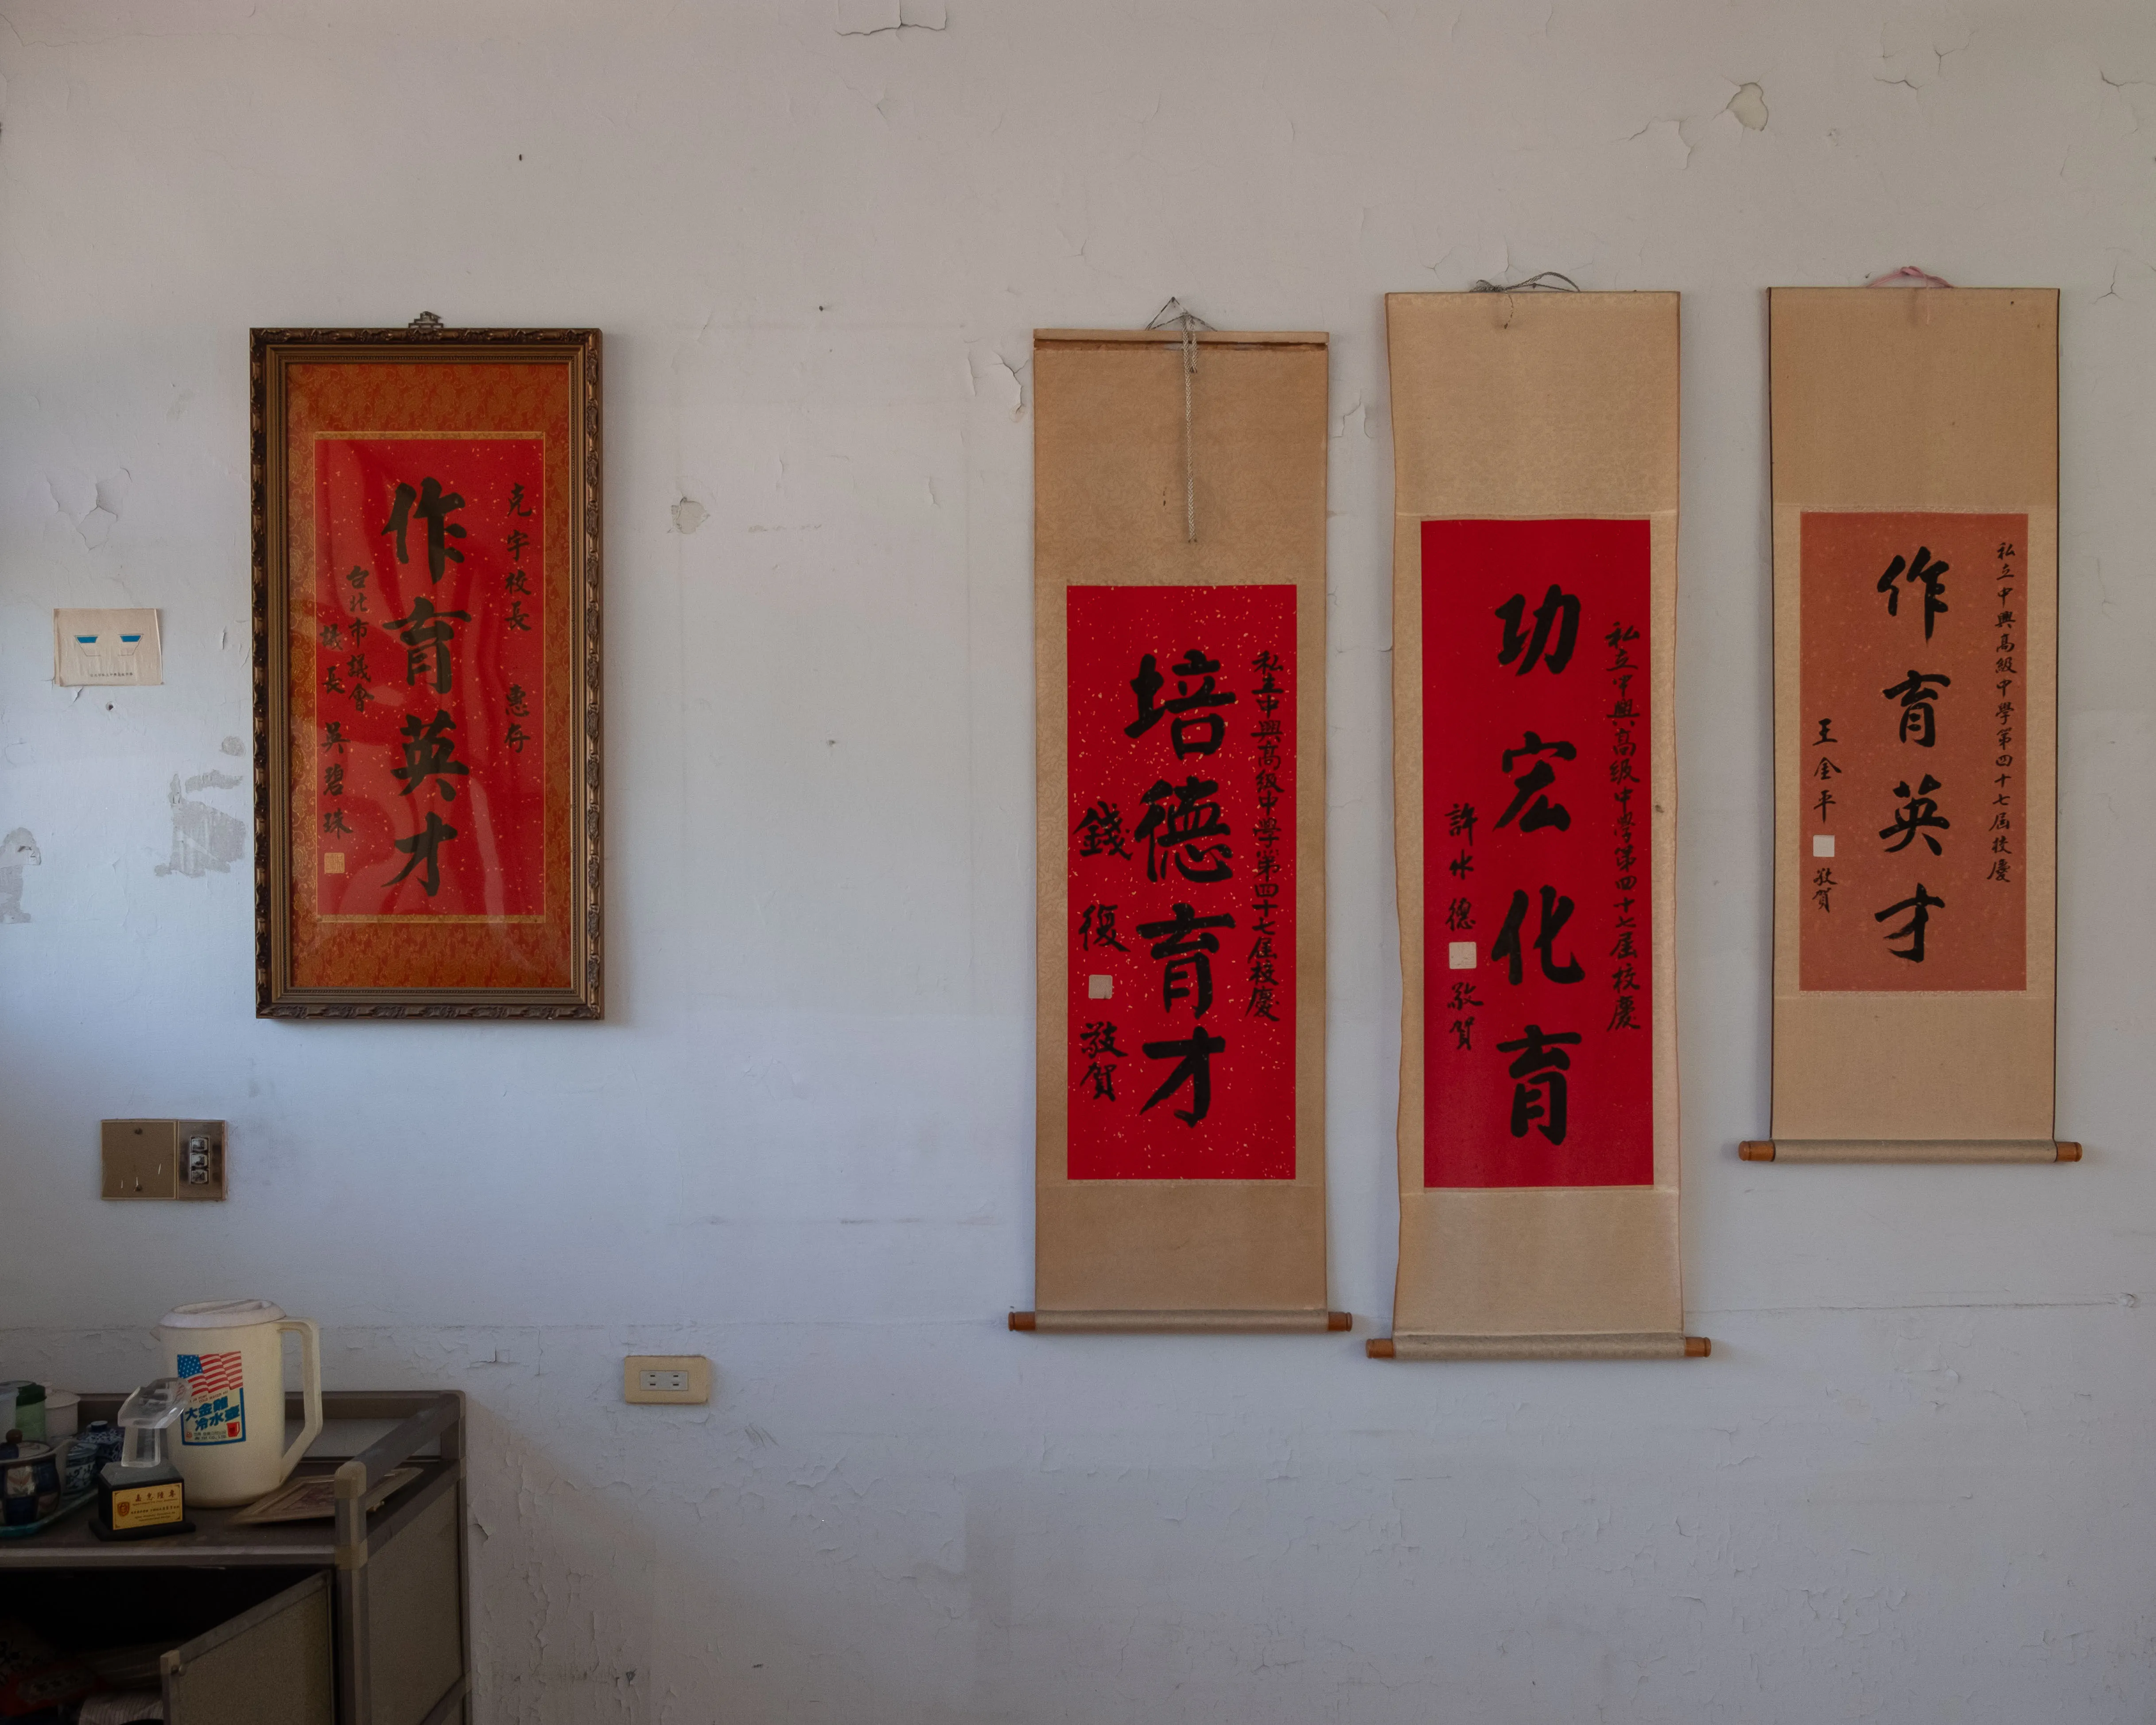 克宇校長 惠存
作育英才
台北市議會
議長 吳碧珠
私立中興高級中學第四十七屆校慶
培德育才
錢復 敬賀
私立中興高級中學第四十七屆校慶
功宏化育
許水德 敬賀
私立中興高級中學第四十七屆校慶
作育英才
王金平 敬賀
大金龍
冷水壺